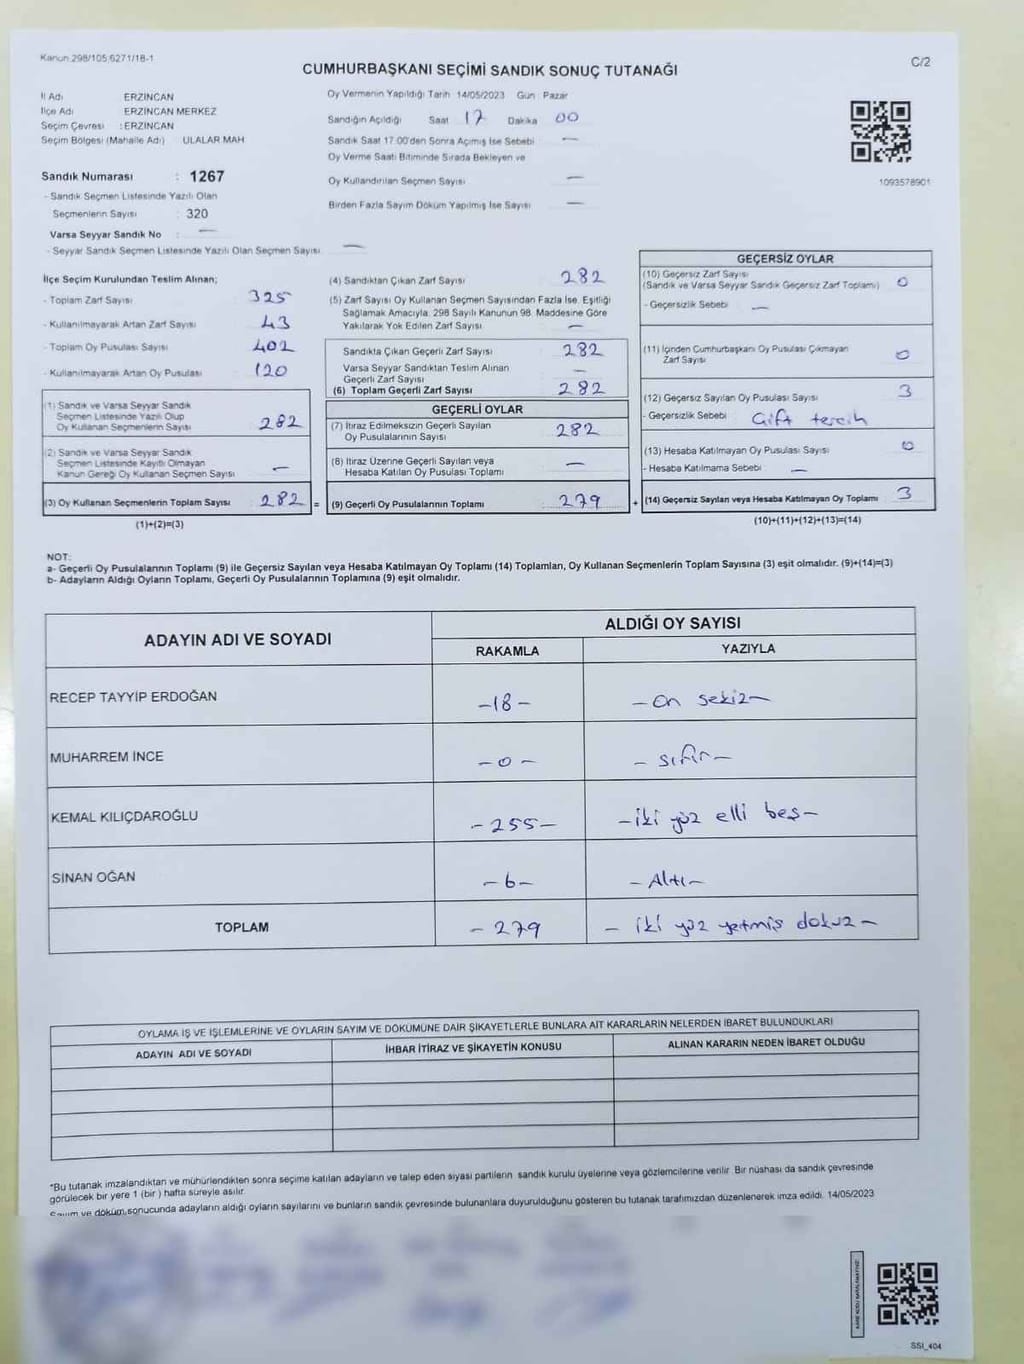 Kanun 298/105 6271/18-1
C/2
CUMHURBAŞKANI SEÇİMİ SANDIK SONUÇ TUTANAĞI
İl Adı ERZİNCAN
İlçe Adı ERZİNCAN MERKEZ
Seçim Çevresi : ERZİNCAN
Seçim Bölgesi (Mahalle Adı) ULALAR MAH
Sandık Numarası : 1267
- Sandık Seçmen Listesinde Yazılı Olan
Seçmenlerin Sayısı : 320
Varsa Seyyar Sandık No : —
- Seyyar Sandık Seçmen Listesinde Yazılı Olan Seçmen Sayısı —
Oy Vermenin Yapıldığı Tarih 14/05/2023 Gün Pazar
Sandığın Açıldığı Saat 17 Dakika 00
Sandık Saat 17:00'den Sonra Açımış İse Sebebi —
Oy Verme Saati Bitiminde Sırada Bekleyen ve
Oy Kullandırılan Seçmen Sayısı —
Birden Fazla Sayım Döküm Yapılmış İse Sayısı —
1093578901
İlçe Seçim Kurulundan Teslim Alınan;
- Toplam Zarf Sayısı 325
- Kullanılmayarak Artan Zarf Sayısı 43
- Toplam Oy Pusulası Sayısı 402
- Kullanılmayarak Artan Oy Pusulası 120
(1) Sandık ve Varsa Seyyar Sandık
Seçmen Listesinde Yazılı Olup
Oy Kullanan Seçmenlerin Sayısı 282
(2) Sandık ve Varsa Seyyar Sandık
Seçmen Listesinde Kayıtlı Olmayan
Kanun Gereği Oy Kullanan Seçmen Sayısı —
(3) Oy Kullanan Seçmenlerin Toplam Sayısı 282 =
(1)+(2)=(3)
(4) Sandıktan Çıkan Zarf Sayısı 282
(5) Zarf Sayısı Oy Kullanan Seçmen Sayısından Fazla İse, Eşitliği
Sağlamak Amacıyla, 298 Sayılı Kanunun 98. Maddesine Göre
Yakılarak Yok Edilen Zarf Sayısı —
Sandıkta Çıkan Geçerli Zarf Sayısı 282
Varsa Seyyar Sandıktan Teslim Alınan
Geçerli Zarf Sayısı —
(6) Toplam Geçerli Zarf Sayısı 282
GEÇERLİ OYLAR
(7) İtiraz Edilmeksizin Geçerli Sayılan
Oy Pusulalarının Sayısı 282
(8) İtiraz Üzerine Geçerli Sayılan veya
Hesaba Katılan Oy Pusulası Toplamı —
(9) Geçerli Oy Pusulalarının Toplamı 279 +
GEÇERSİZ OYLAR
(10) Geçersiz Zarf Sayısı
(Sandık ve Varsa Seyyar Sandık Geçersiz Zarf Toplamı) 0
- Geçersizlik Sebebi —
(11) İçinden Cumhurbaşkanı Oy Pusulası Çıkmayan
Zarf Sayısı 0
(12) Geçersiz Sayılan Oy Pusulası Sayısı 3
- Geçersizlik Sebebi Çift tercih
(13) Hesaba Katılmayan Oy Pusulası Sayısı 0
- Hesaba Katılmama Sebebi —
(14) Geçersiz Sayılan veya Hesaba Katılmayan Oy Toplamı 3
(10)+(11)+(12)+(13)=(14)
NOT:
a- Geçerli Oy Pusulalarının Toplamı (9) ile Geçersiz Sayılan veya Hesaba Katılmayan Oy Toplamı (14) Toplamları, Oy Kullanan Seçmenlerin Toplam Sayısına (3) eşit olmalıdır. (9)+(14)=(3)
b- Adayların Aldığı Oyların Toplamı, Geçerli Oy Pusulalarının Toplamına (9) eşit olmalıdır.
ADAYIN ADI VE SOYADI ALDIĞI OY SAYISI
RAKAMLA YAZIYLA
RECEP TAYYİP ERDOĞAN -18- - On sekiz -
MUHARREM İNCE -0- - sıfır -
KEMAL KILIÇDAROĞLU -255- - iki yüz elli beş -
SİNAN OĞAN -6- - Altı -
TOPLAM - 279 - iki yüz yetmiş dokuz -
OYLAMA İŞ VE İŞLEMLERİNE VE OYLARIN SAYIM VE DÖKÜMÜNE DAİR ŞİKAYETLERLE BUNLARA AİT KARARLARIN NELERDEN İBARET BULUNDUKLARI
ADAYIN ADI VE SOYADI İHBAR İTİRAZ VE ŞİKAYETİN KONUSU ALINAN KARARIN NEDEN İBARET OLDUĞU
*Bu tutanak imzalandıktan ve mühürlendikten sonra seçime katılan adayların ve talep eden siyasi partilerin sandık kurulu üyelerine veya gözlemcilerine verilir. Bir nüshası da sandık çevresinde
görülecek bir yere 1 (bir ) hafta süreyle asılır.
Sayım ve döküm sonucunda adayların aldığı oyların sayılarını ve bunların sandık çevresinde bulunanlara duyurulduğunu gösteren bu tutanak tarafımızdan düzenlenerek imza edildi. 14/05/2023
SSI_404